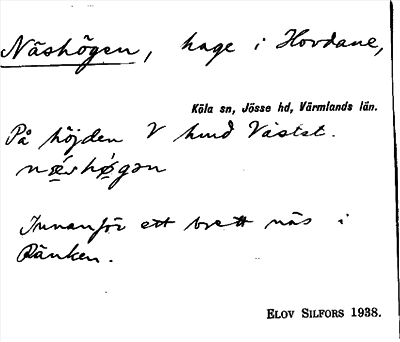 Näshögen, hage i Hovdane,
Köla sn, Jösse hd, Värmlands län.
På höjden V hund Västet.
næ̀shø̀gən
Innanför ett brett näs i
Ränken.
ELOV SILFORS 1938.